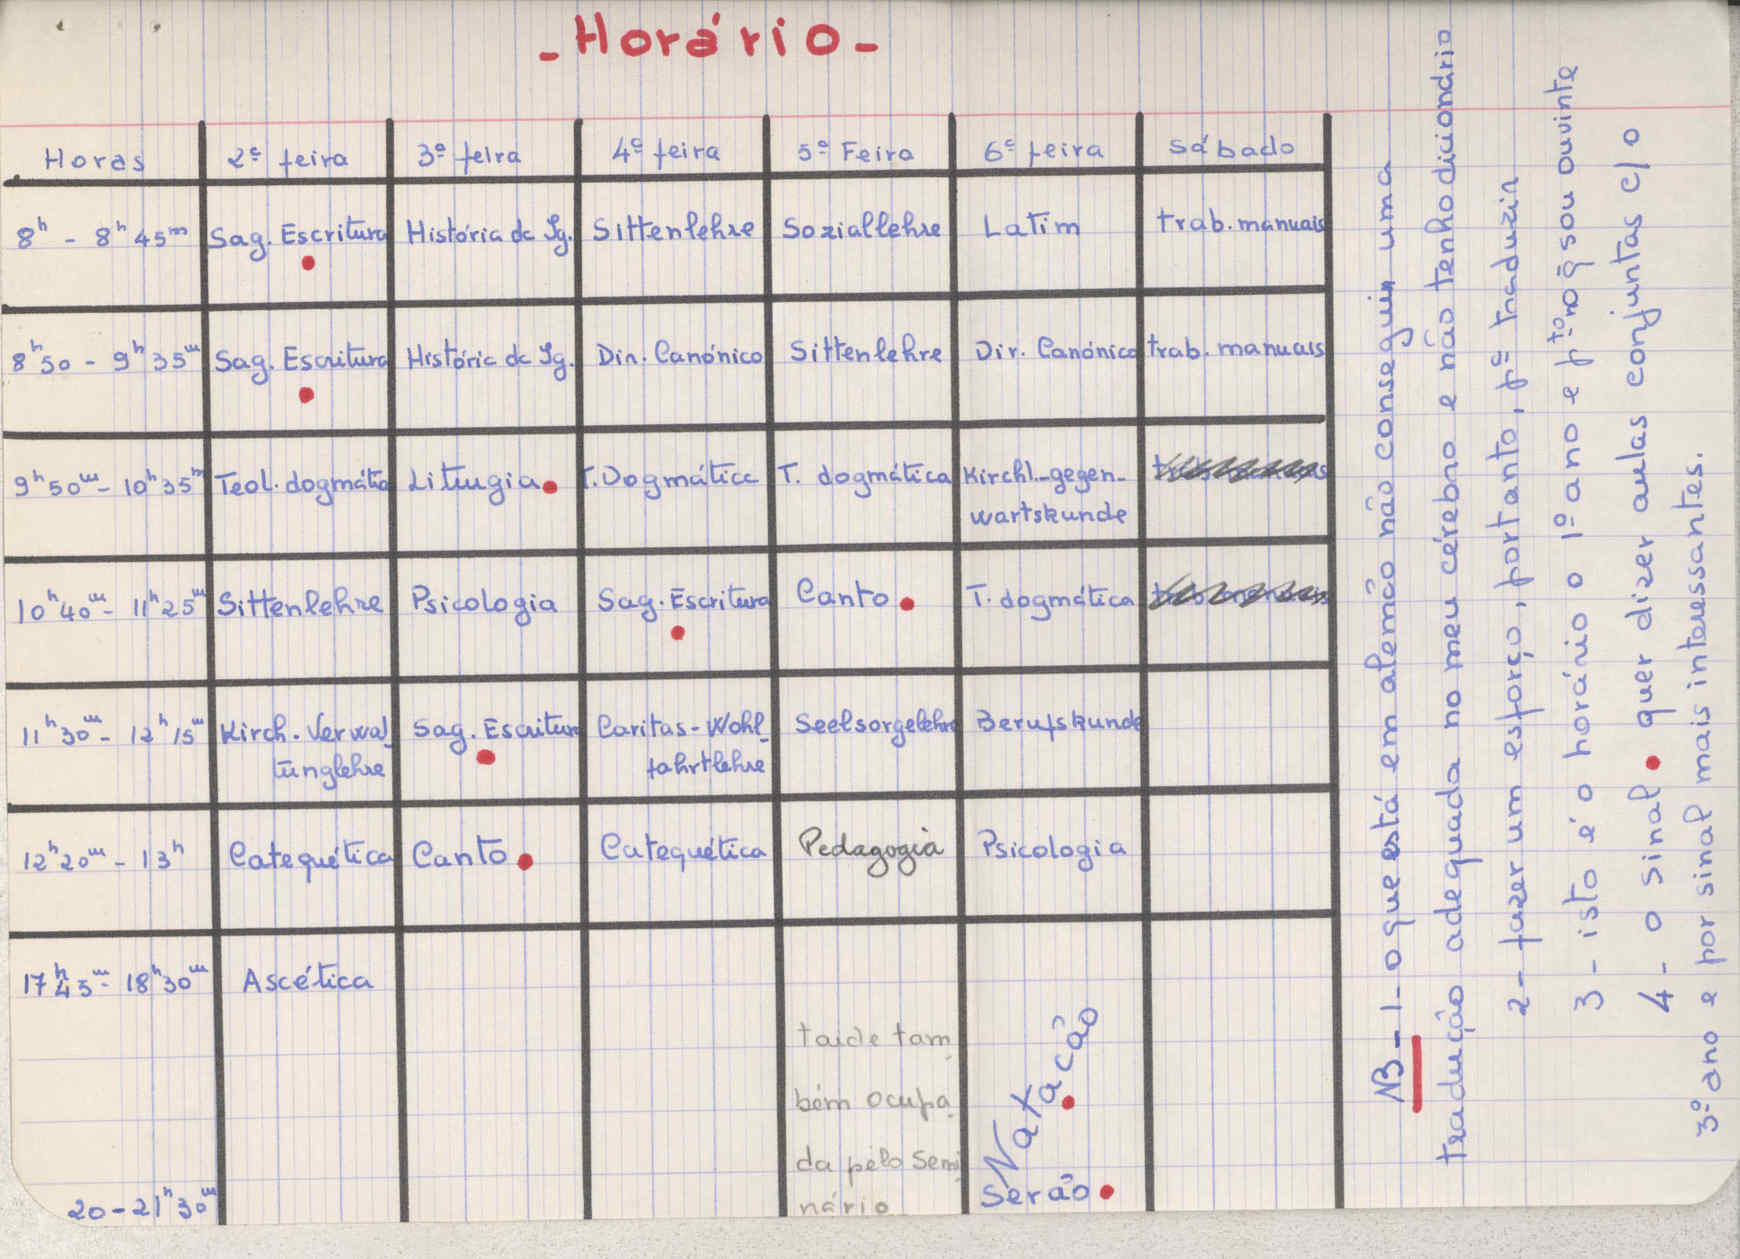 - Horário -
Horas 2ª feira 3ª feira 4ª feira 5ª Feira 6ª feira sábado
8h - 8h45m Sag. Escritura História da Ig. Sittenlehre Soziallehre Latim trab. manuais
8h50 - 9h35m Sag. Escritura História da Ig. Dir. Canónico Sittenlehre Dir. Canónico trab. manuais
9h50m - 10h35m Teol. dogmática Liturgia T. Dogmática T. dogmática Kirchl.-gegen-
wartskunde
10h40m - 11h25m Sittenlehre Psicologia Sag. Escritura Canto T. dogmática
11h30m - 12h15m Kirch. Verwal- Sag. Escritura Caritas-Wohl- Seelsorgelehre Berufskunde
tunglehre fahrtlehre
12h20m - 13h Catequética Canto Catequética Pedagogia Psicologia
17h45m - 18h30m Ascética
tarde tam
bém ocupa
da pelo Semi
nário
Natação
20 - 21h30m Serão
NB - 1 - o que está em alemão não consegui uma
tradução adequada no meu cérebro e não tenho dicionário
2 - fazer um esforço, portanto, pª traduzir
3 - isto é o horário o 1º ano e pto no q̃ sou ouvinte
4 - o sinal • quer dizer aulas conjuntas c/ o
3º ano e por sinal mais interessantes.